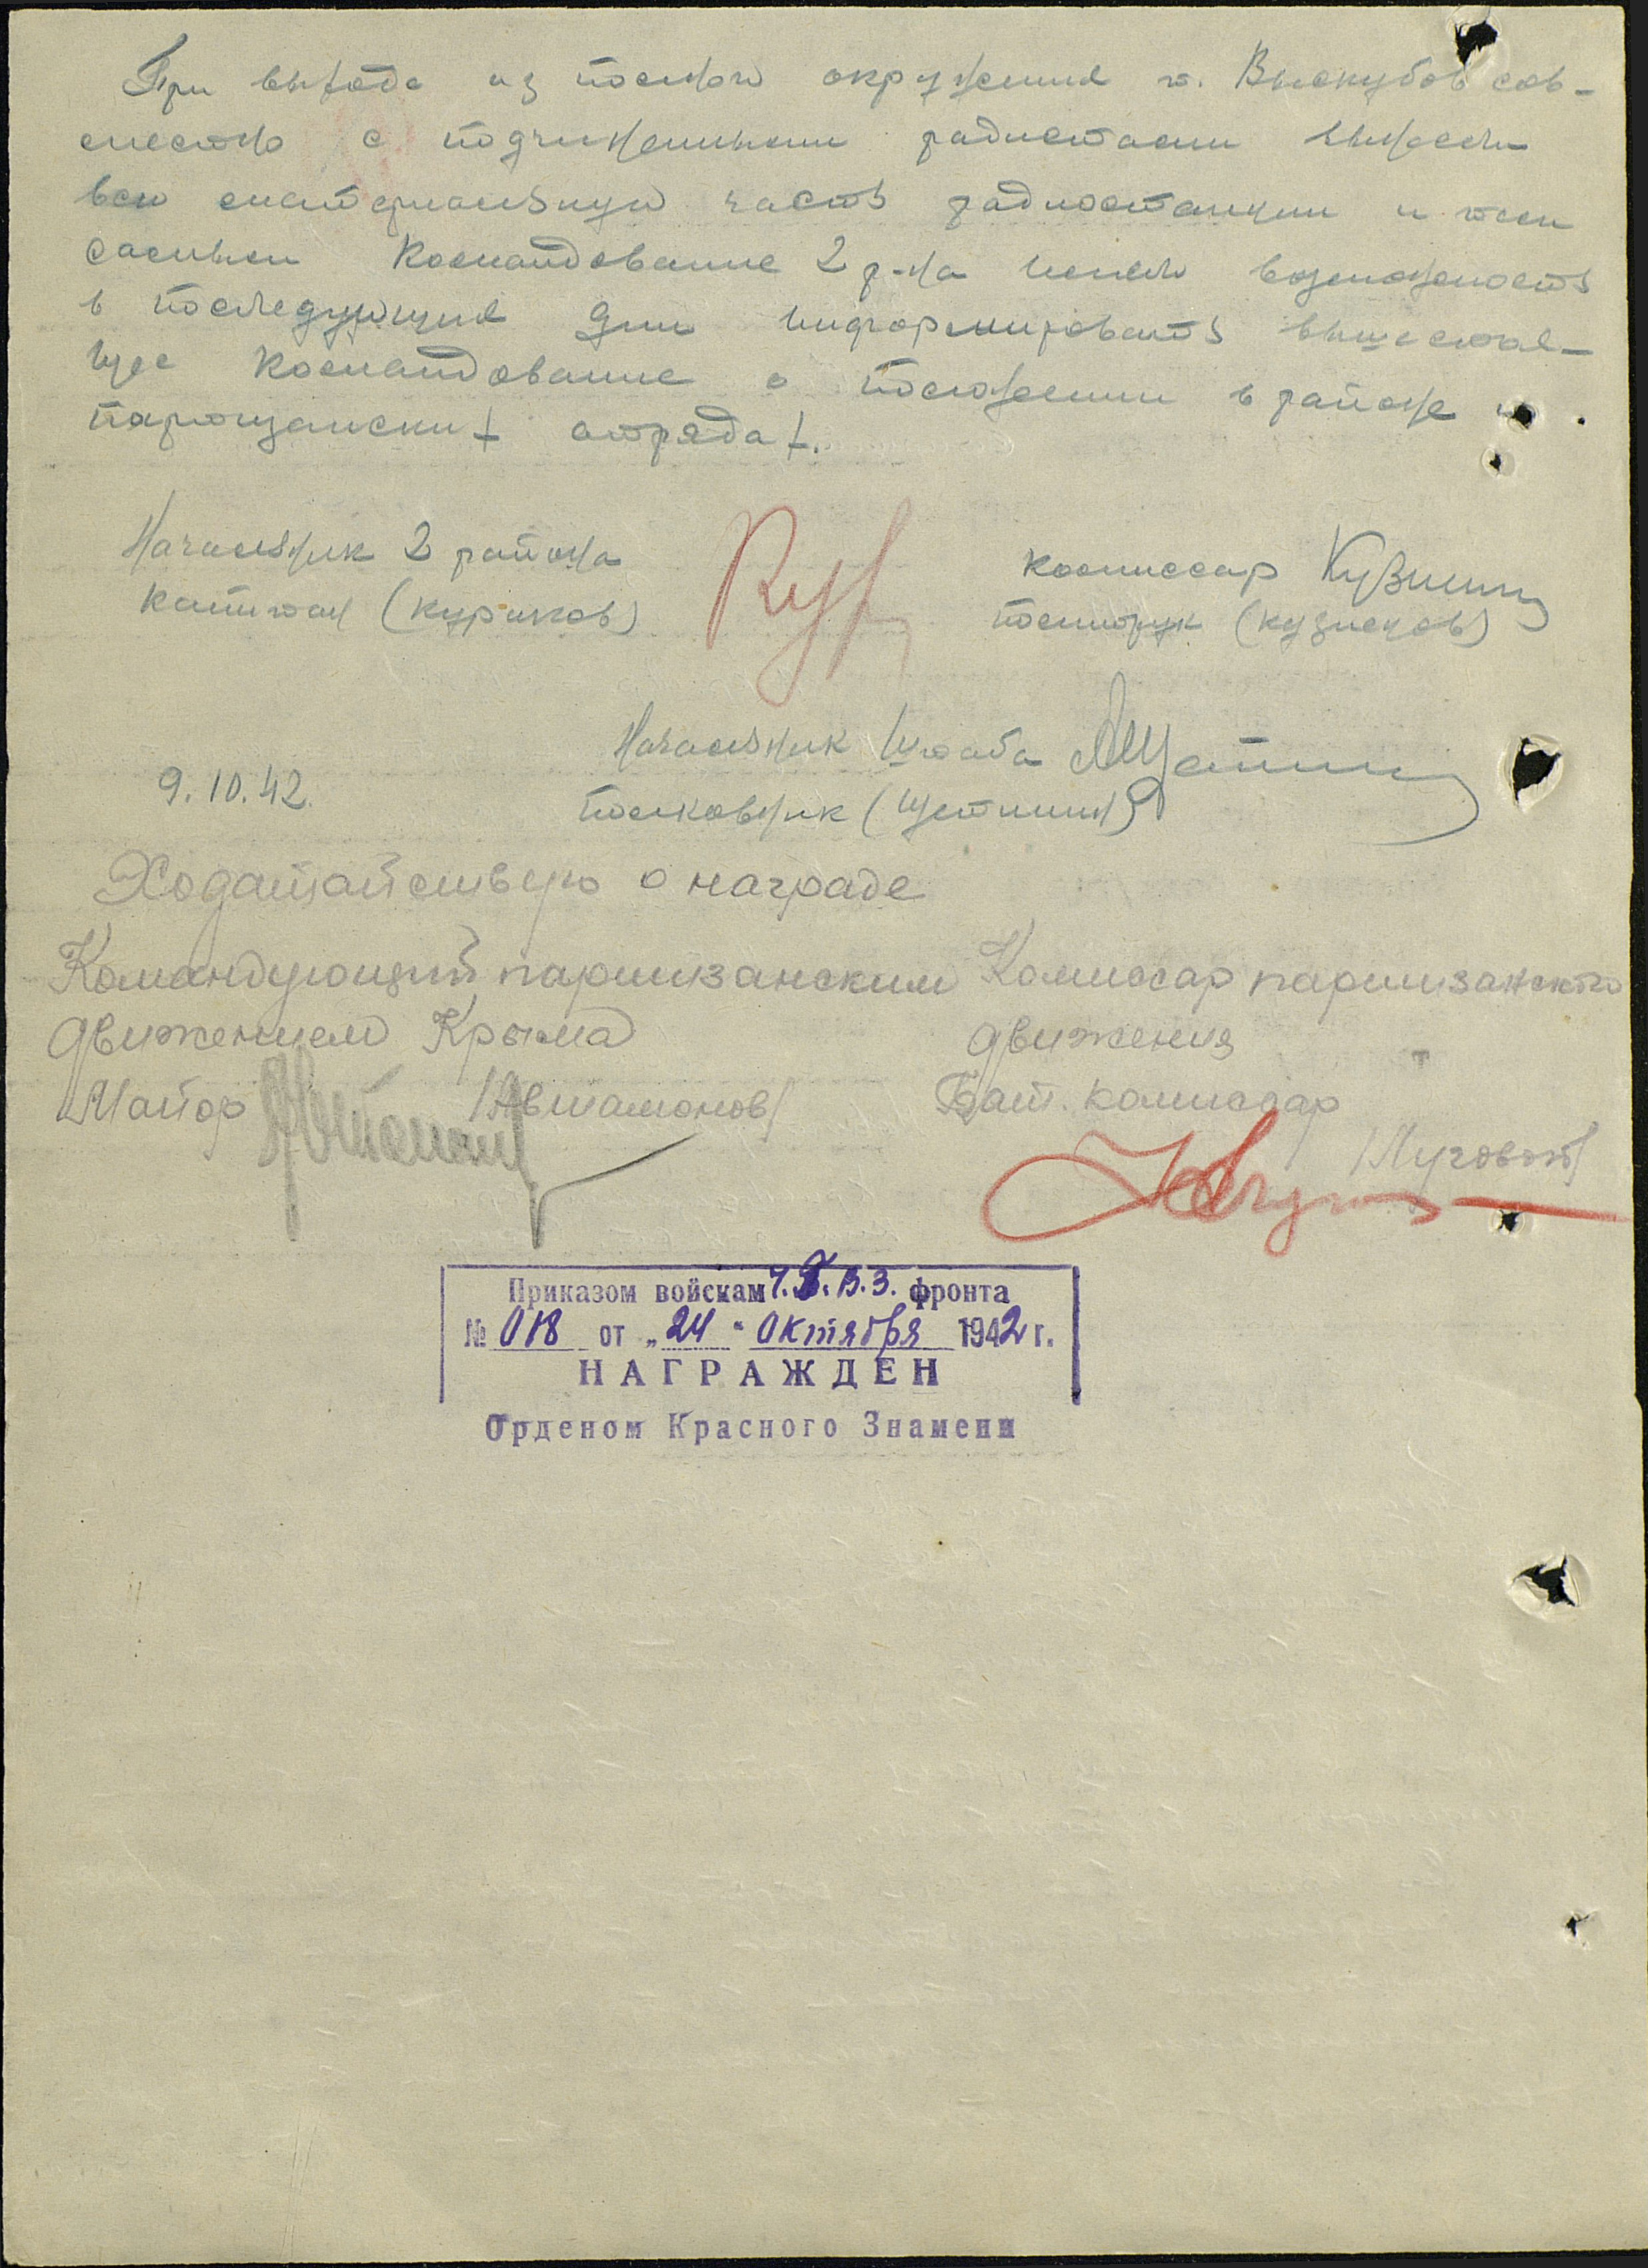 При выходе из полного окружения т. Выскубов сов-
местно с подчиненными радистами вынесли
всю материальную часть радиостанции и тем
самым командование 2 р-на имело возможность
в последующие дни информировать вышестоя-
щее командование о положении в районе и
партизанских отрядах.
Начальник 2 района
капитан (Кураков)
комиссар
политрук (Кузнецов)
Начальник Штаба
9.10.42.
полковник (Щетинин)
Ходатайствую о награде
Командующий партизанским
движением Крыма
Майор /Автамонов/
Комиссар партизанского
движения
Бат. комиссар
/Луговой/
Приказом войскам Ч.Г.В.З. фронта
№ 018 от „24" Октября 1942 г.
НАГРАЖДЕН
Орденом Красного Знамени